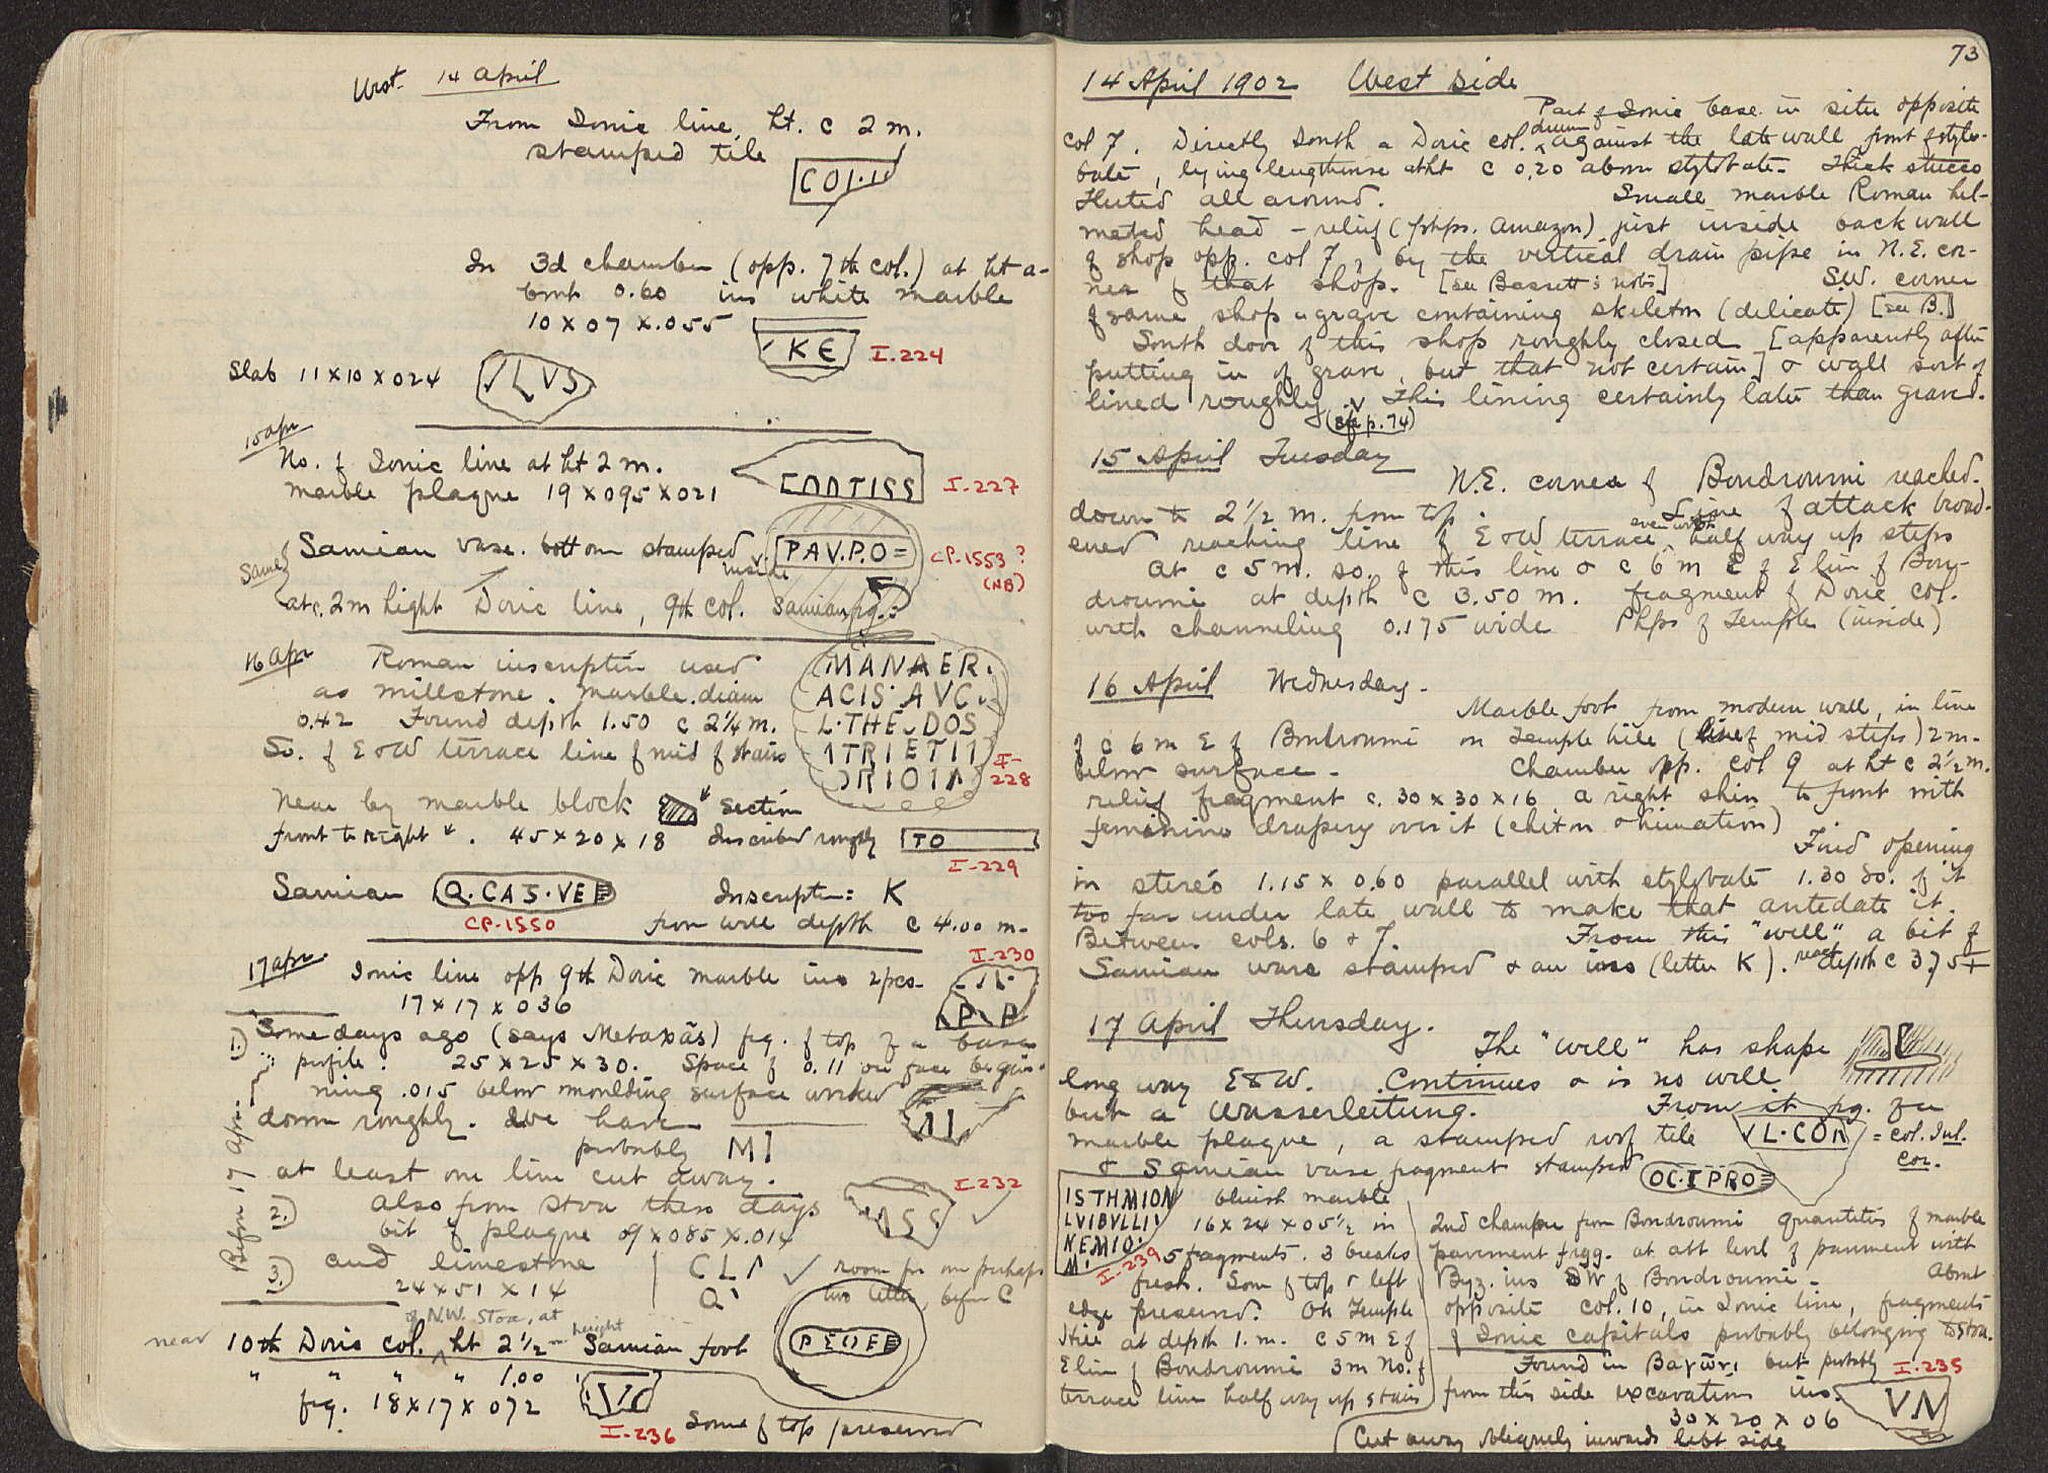 West 14 April
From Ionic line, ht. c 2 m.
stamped tile
COI.
In 3d chamber (opp. 7th col.) at ht a-
bout 0.60 ins white marble
10 x 07 x .055
KE I-224
Slab 11 x 10 x 024 LVS
15 apr
No. of Ionic line at ht 2 m.
marble plaque 19 x 095 x 021 I-227
Samian vase. bottom stamped inside PAV.P.O= CP-1553 ? (NB)
Same
at c. 2m hight Doric line, 9th col. Samian fig.
16 apr Roman inscription used
as millstone. marble. diam
0.42 Found depth 1.50 c 2¼ m.
So. of E & W terrace line of mid of stairs
MANAER.
ACIS·AVC
L·THE DOS
TRIETI
RIOIA
I-228
Near by marble block section
front to right. 45 x 20 x 18 Inscribed roughly TO
I-229
Samian Q·CAS·VE Inscription: K
CP-1550 from well depth c 4.00 m.
17 apr. Ionic line opp 9th Doric marble ins 2 pcs. I-230
17 x 17 x 036 P P
1.) Some days ago (says Metaxãs) frg. of top of a base
profile. 25 x 25 x 30. Space of 0.11 on face begin-
ning .015 below moulding surface worked
down roughly. We have
probably M
at least one line cut away.
Before 17 Apr.
2.) Also from Stoa these days I-232
bit of plaque 09 x 085 x .014 ✓
3.) and limestone CL ✓ room for one perhaps
24 x 51 x 14 Q two letters before C
of N.W. Stoa, at
near 10th Doric col. ht 2½ m height Samian foot
" " " " 1.00 "
frg. 18 x 17 x 072 I-236
Some of top preserved
73
14 April 1902 West side
Part of Ionic base in situ opposite
col 7. Directly South a Doric col. drum against the late wall front of stylo-
bate, lying lengthwise at ht c 0.20 above stylobate. Thick stucco
fluted all around. Small marble Roman hel-
meted head - relief (prhps. Amazon) just inside back wall
of shop opp. col 7, by the vertical drain pipe in N.E. cor-
ner of that shop. [see Bassett's nots] S.W. corner
of same shop a grave containing skeleton (delicate) [see B.]
South door of this shop roughly closed [apparently after
putting in of grave, but that not certain] & wall sort of
lined roughly. This lining certainly later than grave.
(see p. 74)
15 April Tuesday
N.E. corner of Boudroumi reached.
down to 2½ m. from top. Line of attack broad-
ened reaching line of E & W terrace, even with half way up steps
At c 5 m. so. of this line & c 6 m E of E line of Bou-
droumi at depth c 3.50 m. fragment of Doric col.
with channeling 0.175 wide Phps of Temple (inside)
16 April Wednesday.
Marble foot from modern wall, in line
of c 6 m E of Boudroumi on Temple hill (line of mid steps) 2 m.
below surface. Chamber opp. Col 9 at ht c 2½ m.
relief fragment c. 30 x 30 x 16 a right shin to front with
feminine drapery over it (chiton & himation)
Find opening
in stereo 1.15 x 0.60 parallel with stylobate 1.30 So. of it
too far under late wall to make that antedate it.
Between cols. 6 & 7. From this "well" a bit of
Samian ware stamped & an ins (letter K). reach depth c 3.75+
17 April Thursday.
The "well" has shape
long way E & W. Continues & is no well
but a Wasserleitung. From it frg. of a
marble plaque, a stamped roof tile L·COR = Col. Iul. Cor.
& Samian vase fragment stamped OC.I PRO
ISTHMION
LVIBVLLI
NEMIO
M
I-239
bluish marble
16 x 24 x 05½ in
5 fragments. 3 breaks
fresh. Some of top & left
edge preserved. On Temple
Hill at depth 1. m. c 5 m E of
E line of Boudroumi 3 m No. of
terrace line half way up stairs
2nd chamber from Boudroumi quantities of marble
pavement frgg. at abt level of pavement with
Byz. ins SW of Boudroumi. About
opposite col. 10, in Ionic line, fragments
of Ionic capitals probably belonging to Stoa.
Found in but probably I-235
from this side excavation ins. VN
30 x 20 x 06
Cut away obliquely inwards left side